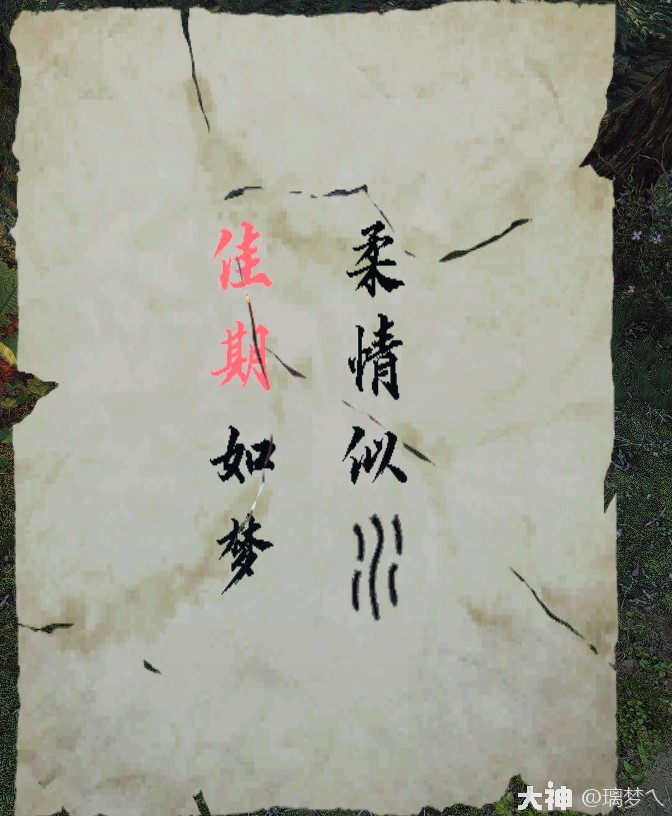 柔情似水
佳期如梦
大神 @璃梦乀